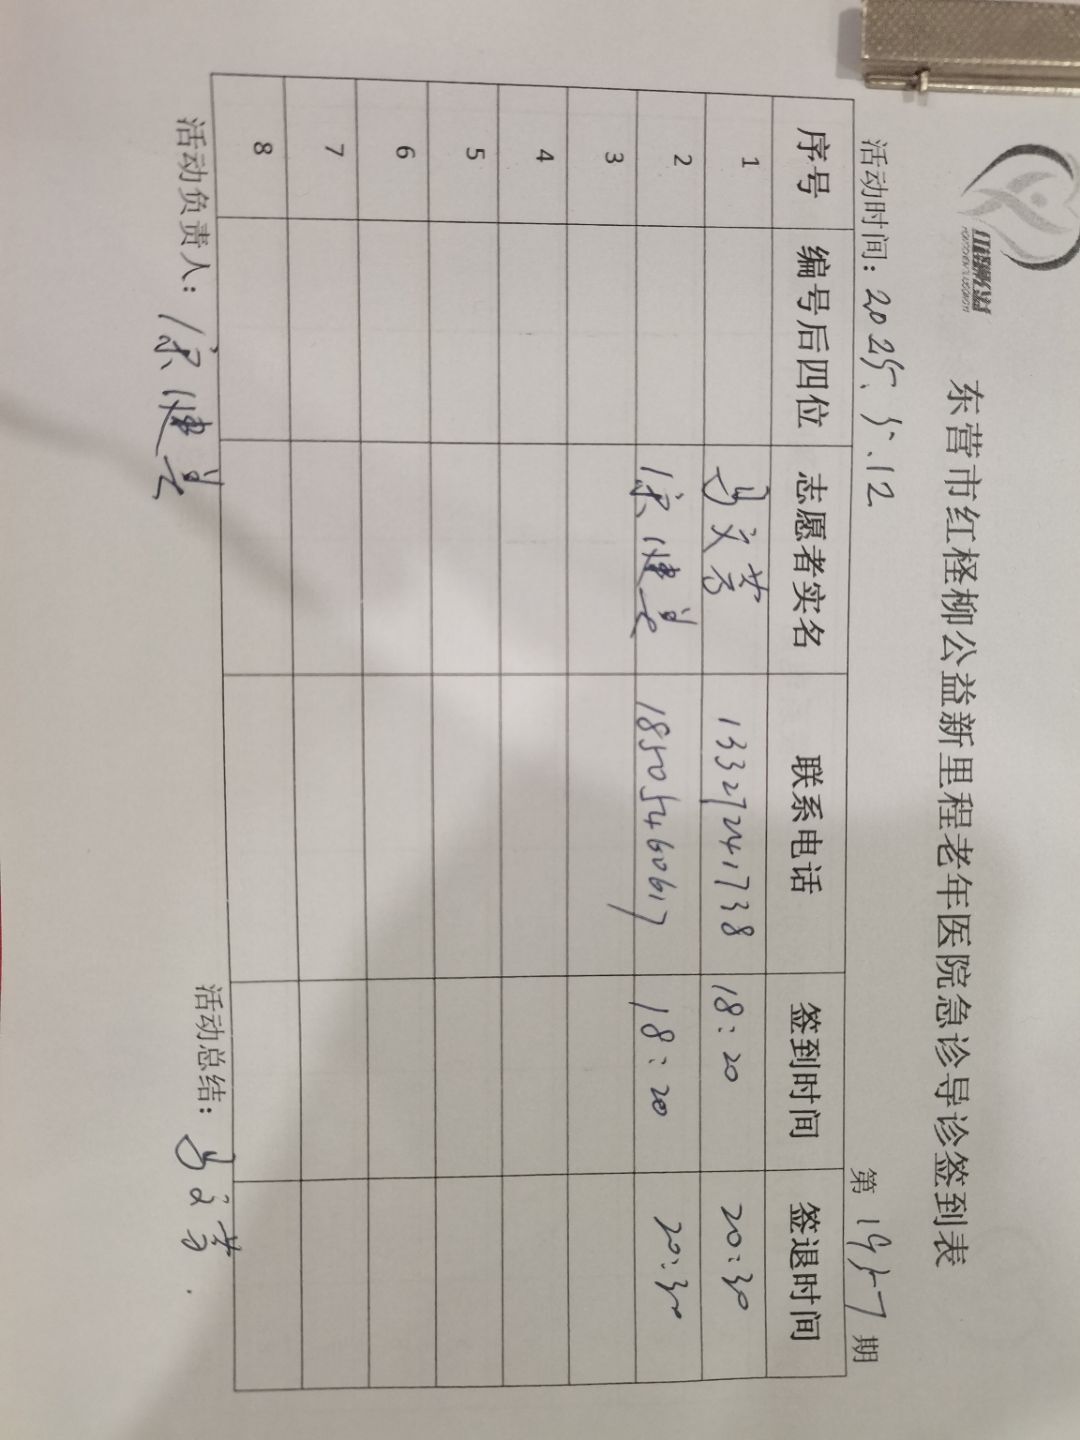 东营市红柽柳公益新里程老年医院急诊导诊签到表
活动时间：2025、5.12 第1957期
序号 编号后四位 志愿者实名 联系电话 签到时间 签退时间
1 马文芳 13327241738 18:20 20:30
2 徐健美 18505460617 18:20 20:30
3
4
5
6
7
8
活动负责人：徐健美 活动总结：马文芳